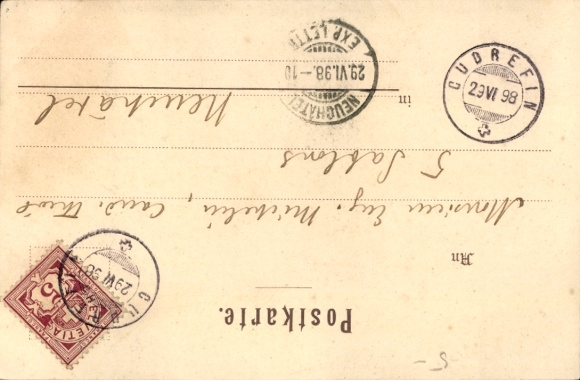 Postkarte.
An
Monsieur Eug. Michelin, cand. théol
5 Sablons
in
Neuchâtel
NEUCHÂTEL
29.VI.98.-10
EXP. LETTR.
CUDREFIN
29 VI 98
CUDREFIN
29 VI 98
HELVETIA
5
5-